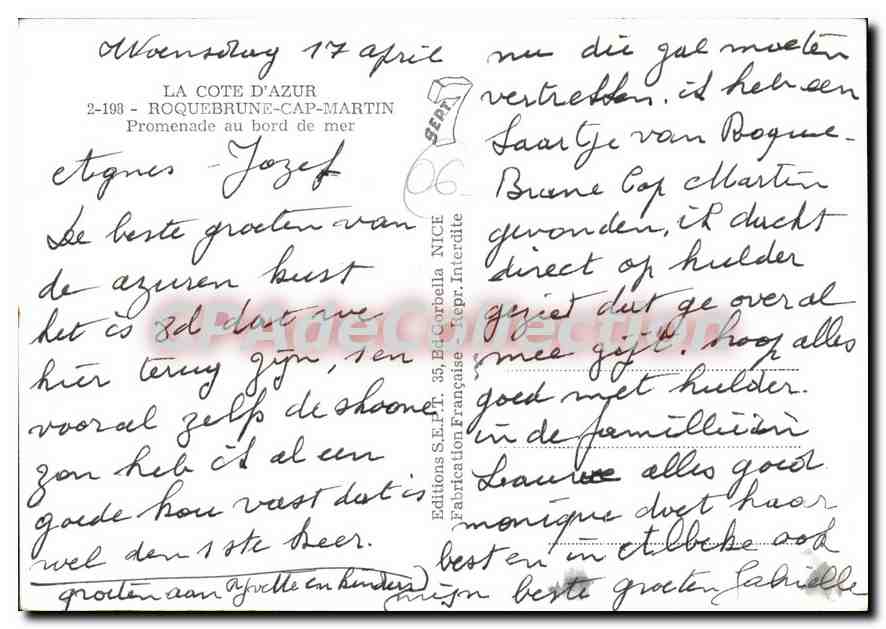 Woensdag 17 april
LA COTE D'AZUR
2-198 - ROQUEBRUNE-CAP-MARTIN
Promenade au bord de mer
Agnes - Jozef
De beste groeten van
de azuren kust
het is 8d dat we
hier terug zijn, en
vooral zelfs de shoone
zon heb ik al een
goede kou vast dat is
wel den 1ste keer.
groeten aan Yvette en kinders
SEPT
06
Editions S.E.P.T. 35, Bd Corbella NICE
Fabrication Française - Repr. Interdite
nu die gal moeten
vertreffen. ik heb een
kaartje van Roque-
Brune Cap Martin
gevonden, ik dacht
direct op hulder
gezied dat ge overal
mee zijt. hoop alles
goed met hulder.
in de famillie in
alles goed
monique doet haar
best en in Albeke ook
mijn beste groeten Gabrielle
CPAdeCollection